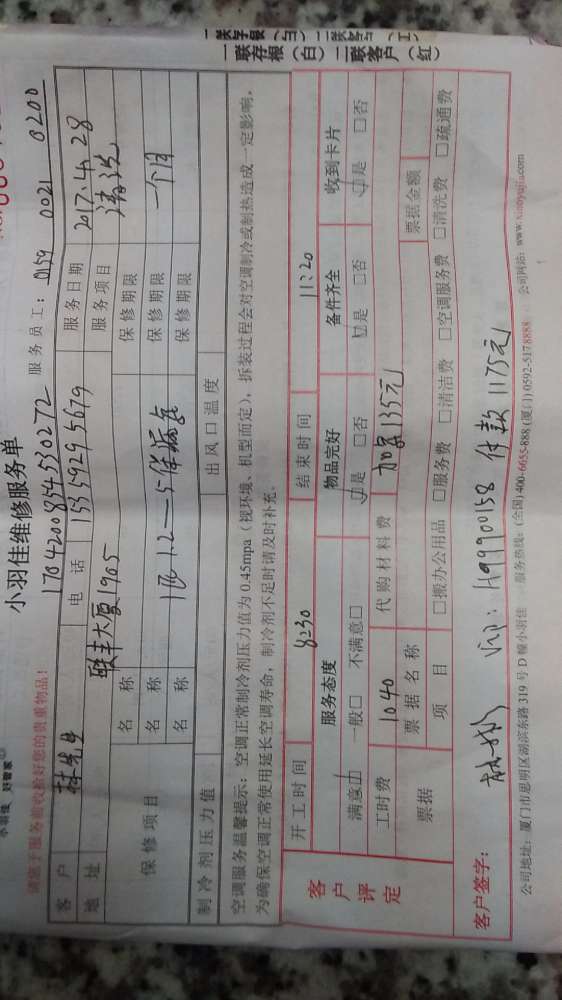 一联存根（白）二联客户（红）
小羽佳 好管家
小羽佳维修服务单
请您于服务前收拾好您的贵重物品!
170420085453 0272
服务员工: 0159 0021 0200
客户 林先生 电话 15359295679 服务日期 2017.4.28
地址 联丰大厦1905 服务项目 清洗
保修项目
名称 保修期限
名称 保修期限 一个月
名称 保修期限
制冷剂压力值 出风口温度
空调服务温馨提示: 空调正常制冷剂压力值为 0.45mpa（视环境、机型而定）, 拆装过程会对空调制冷或制热造成一定影响,
为确保空调正常使用延长空调寿命, 制冷剂不足时请及时补充。
客户评定
开工时间 8:30 结束时间 11:20
服务态度 物品完好 备件齐全 收到卡片
满意□ 一般□ 不满意□ □是 □否 □是 □否 □是 □否
工时费 1040 代购材料费 加氟135元
票据 票据名称 票据金额
项目 □搬办公用品 □服务费 □清洁费 □空调服务费 □清洗费 □疏通费
客户签字: Vip: H99900158 付款 1175元
公司地址: 厦门市思明区湖滨东路 319 号 D 幢小羽佳 服务热线: (全国) 400-6655-888 (厦门) 0592-5178888 公司网站: www.xiaoyujia.com